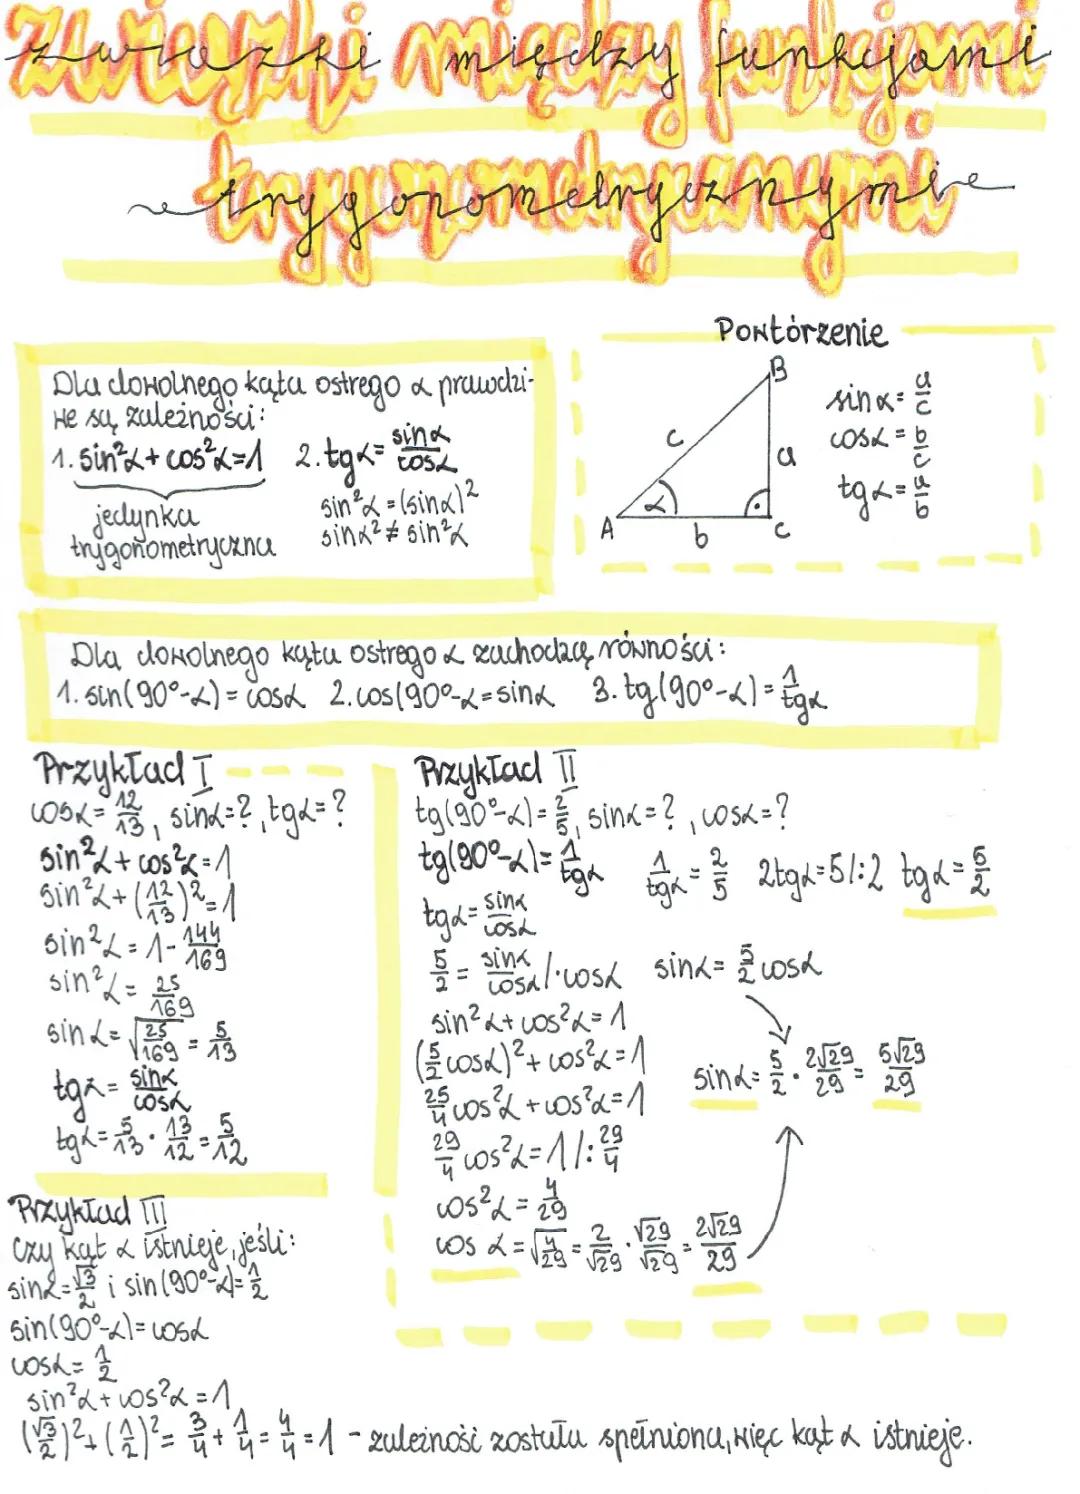 Związki między funkcjami
trygonometrycznymi
Dla dowolnego kąta ostrego α prawdzi-
we są zależności:
1. sin²α + cos²α = 1
2. tgα = sinα/cosα
jedynka
trygonometryczna
sin²α = (sinα)²
sinα² ≠ sin²α
Powtórzenie
B
c
a
α
A
b
C
sinα = a/c
cosα = b/c
tgα = a/b
Dla dowolnego kąta ostrego α zachodzą równości:
1. sin(90°-α) = cosα 2. cos(90°-α = sinα 3. tg(90°-α) = 1/tgα
Przykład I
cosα = 12/13, sinα = ?, tgα = ?
sin²α + cos²α = 1
sin²α + (12/13)² = 1
sin²α = 1 - 144/169
sin²α = 25/169
sinα = √25/169 = 5/13
tgα = sinα/cosα
tgα = 5/13 · 13/12 = 5/12
Przykład II
tg(90°-α) = 2/5, sinα = ?, cosα = ?
tg(90°-α) = 1/tgα 1/tgα = 2/5 2tgα = 5 /:2 tgα = 5/2
tgα = sinα/cosα
5/2 = sinα/cosα /·cosα sinα = 5/2 cosα
sin²α + cos²α = 1
(5/2 cosα)² + cos²α = 1
sinα = 5/2 · 2√29/29 = 5√29/29
25/4 cos²α + cos²α = 1
29/4 cos²α = 1 /: 29/4
cos²α = 4/29
cos α = √4/29 = 2/√29 · √29/√29 = 2√29/29
Przykład III
Czy kąt α istnieje, jeśli:
sinα = √3/2 i sin(90°-α) = 1/2
sin(90°-α) = cosα
cosα = 1/2
sin²α + cos²α = 1
(√3/2)² + (1/2)² = 3/4 + 1/4 = 4/4 = 1 - zależność została spełniona, więc kąt α istnieje.